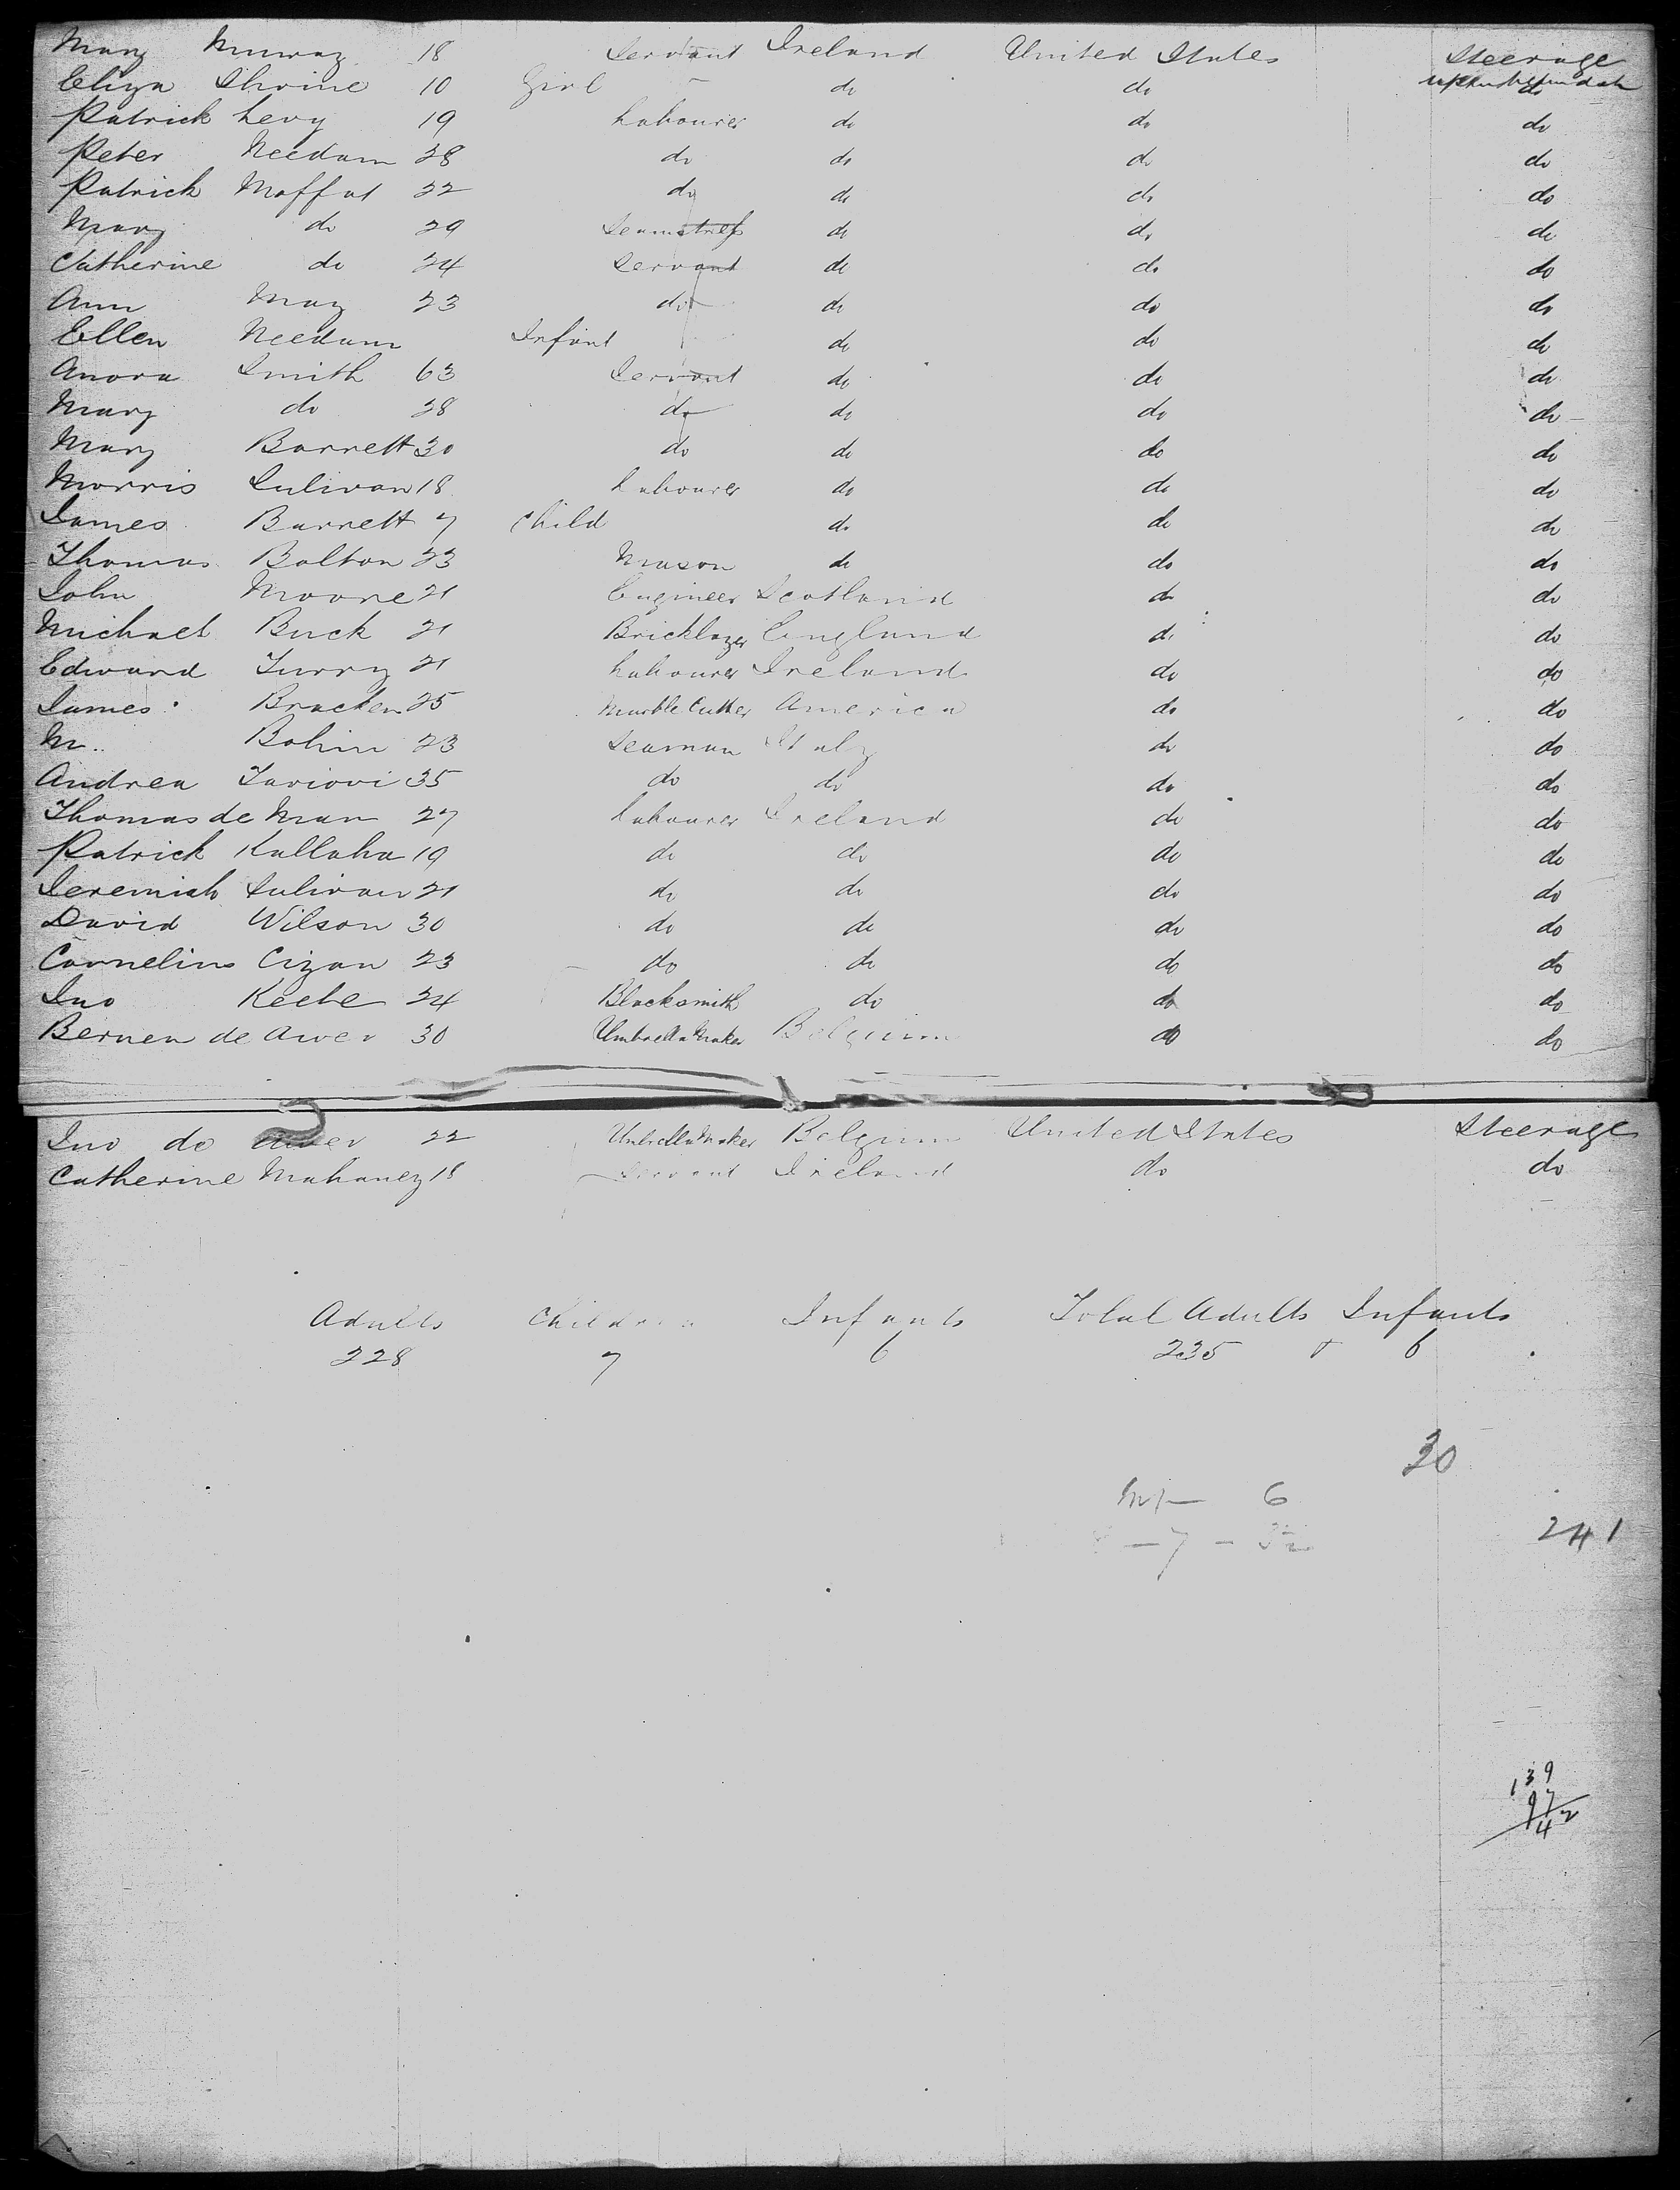 Mary Murray 18 Servant Ireland United States Steerage
Eliza Shrine 10 Girl do do do
Patrick Levy 19 Labourer do do do
Peter Needam 28 do do do do
Patrick Moffat 22 do do do do
Mary do 29 Seamstress do do do
Catherine do 24 Servant do do do
Ann May 23 do do do do
Ellen Needam Infant do do do
Anora Smith 63 Servant do do do
Mary do 28 do do do do
Mary Barrett 30 do do do do
Morris Sulivan 18 Labourer do do do
James Barrett 7 Child do do do
Thomas Bolton 23 Mason do do do
John Moore 21 Engineer Scotland do do
Michael Buck 21 Bricklayer England do do
Edward Turry 21 Labourer Ireland do do
James Bracken 25 Marble Cutter America do do
M. Bohin 23 Seaman Italy do do
Andrea Taviovi 35 do do do do
Thomas de Man 27 Labourer Ireland do do
Patrick Kallaha 19 do do do do
Jeremiah Sulivan 21 do do do do
David Wilson 30 do do do do
Cornelius Cizan 23 do do do do
Jno Keebe 24 Blacksmith do do do
Bernen de Awer 30 Umbrella Maker Belgium do do
Jno de Awer 22 Umbrella Maker Belgium United States Steerage
Catherine Mahaney 18 Servant Ireland do do
Adults Children Infants Total Adults Infants
228 7 6 235 + 6
30
6
241
139
97
42